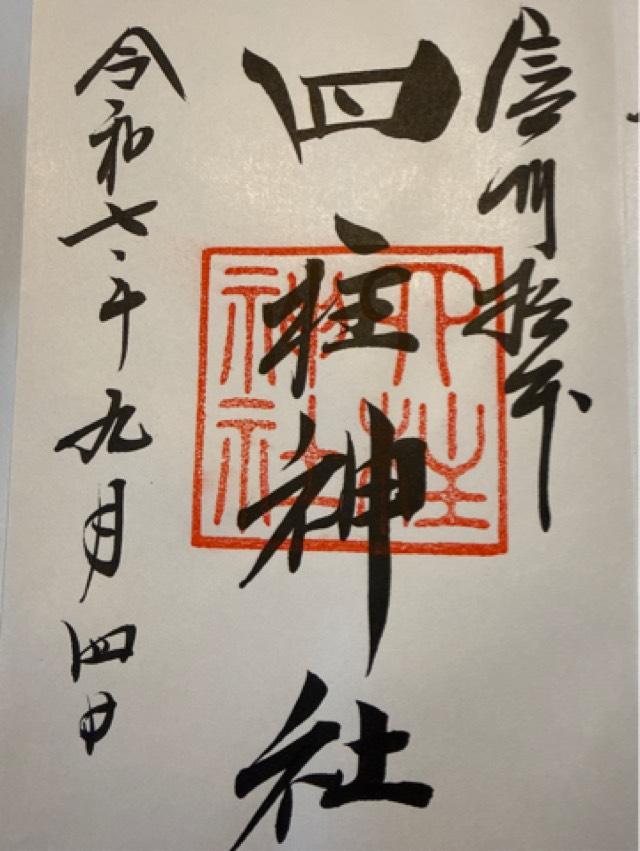 信州松本
四柱神社
令和七年九月四日